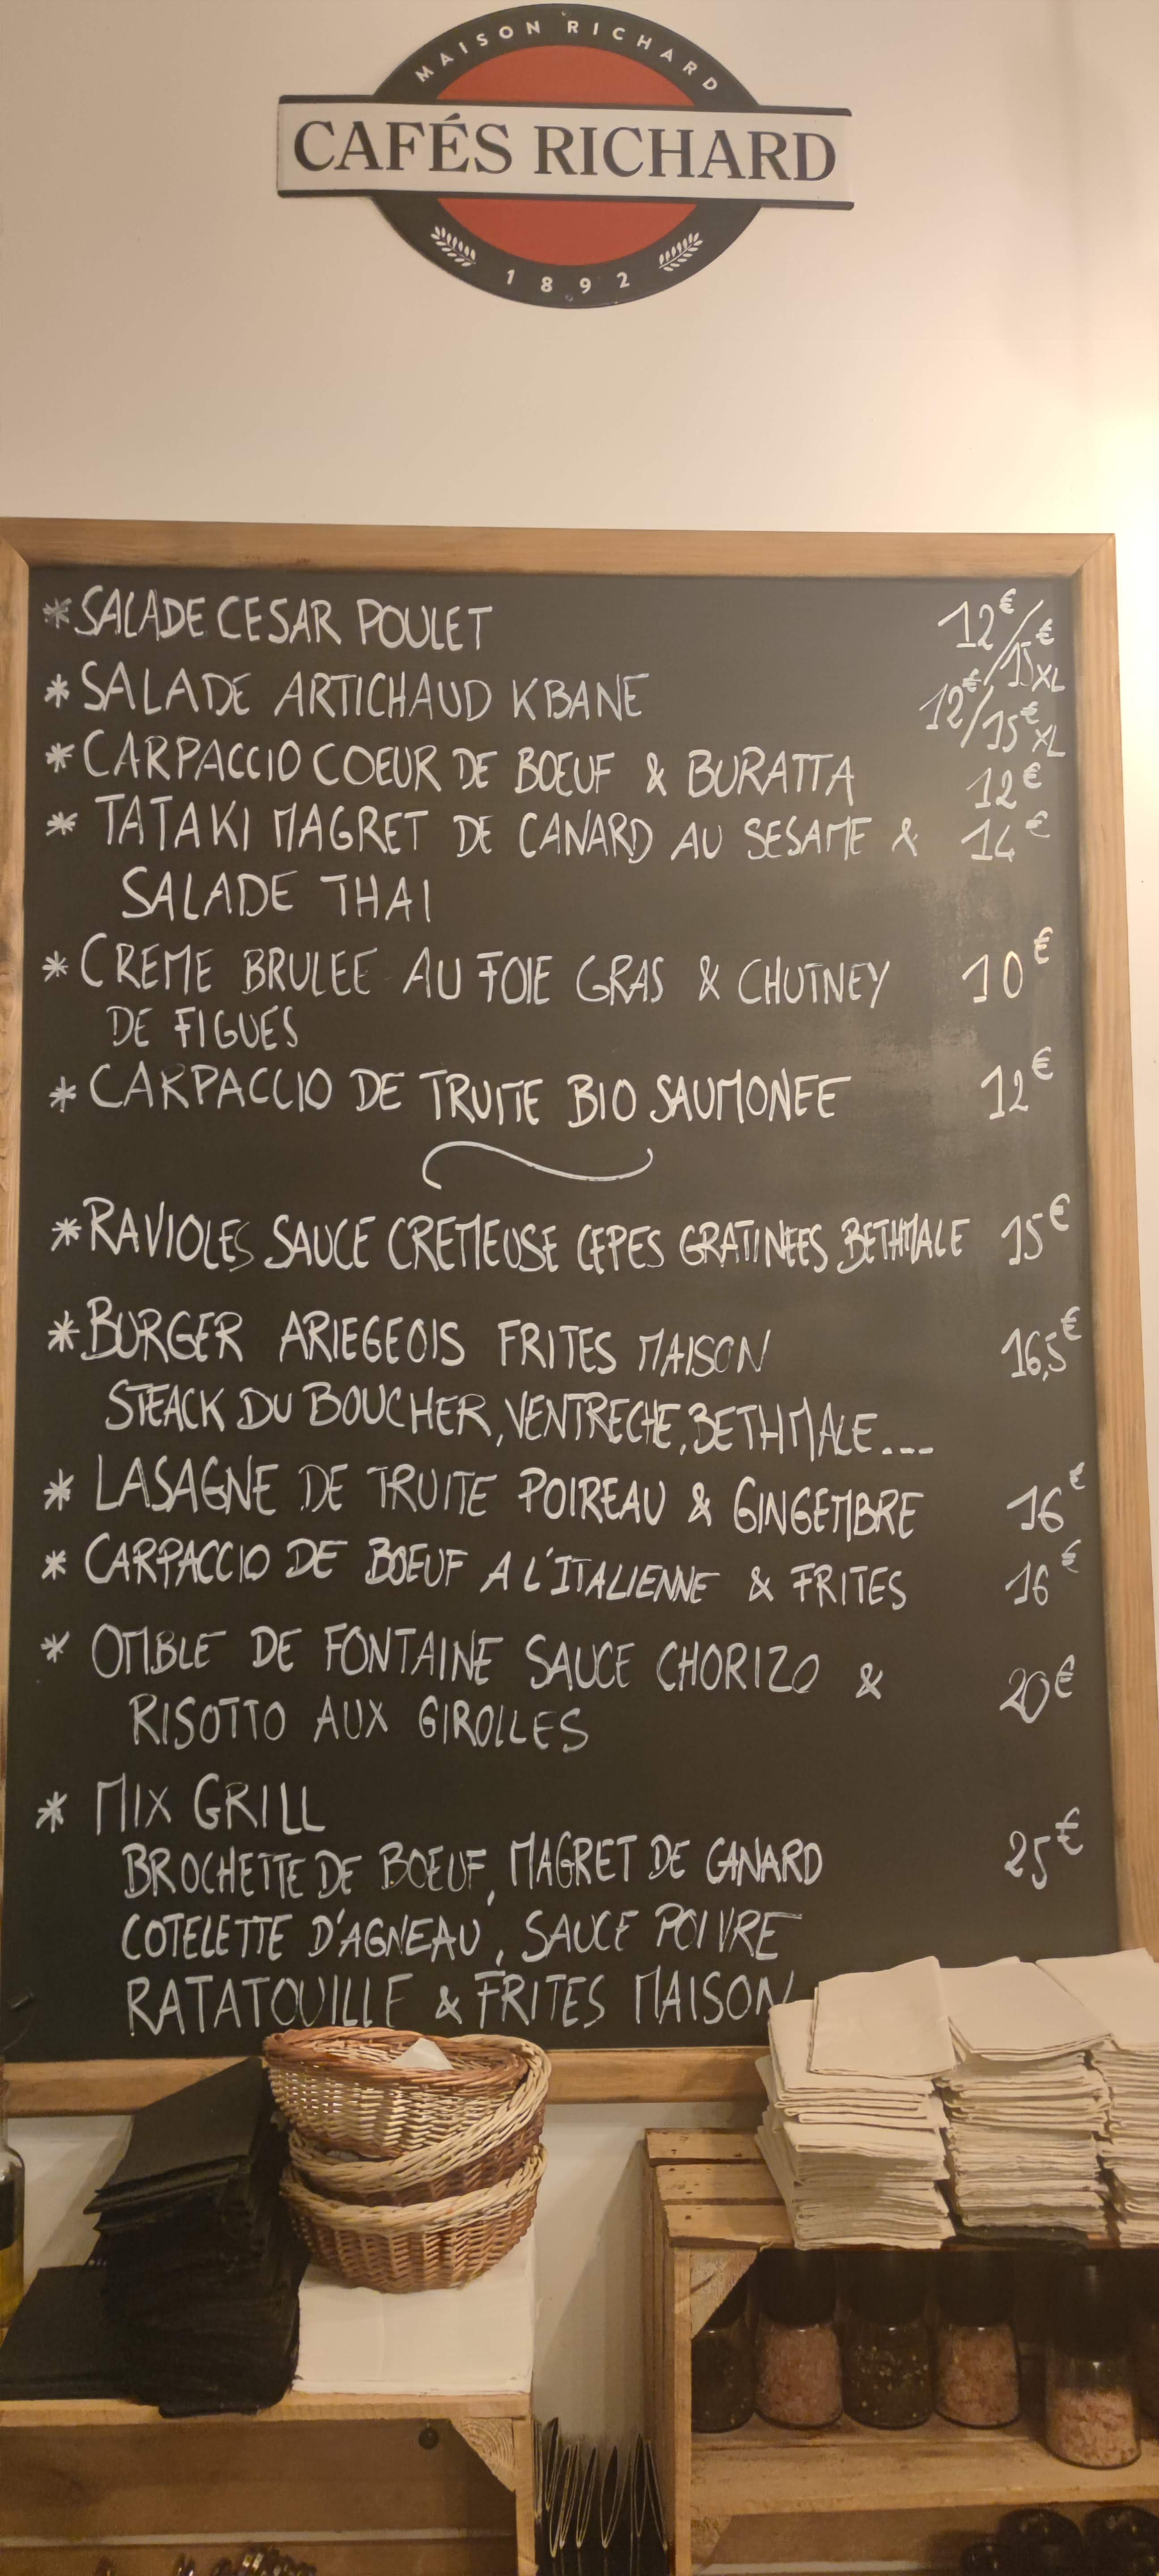 MAISON RICHARD
CAFÉS RICHARD
1892
*SALADE CESAR POULET 12€/15€XL
*SALADE ARTICHAUD KBANE 12€/15€XL
*CARPACCIO COEUR DE BOEUF & BURATTA 12€
*TATAKI MAGRET DE CANARD AU SESAME & 14€
SALADE THAI
*CREME BRULEE AU FOIE GRAS & CHUTNEY 10€
DE FIGUES
*CARPACCIO DE TRUITE BIO SAUMONEE 12€
*RAVIOLES SAUCE CREMEUSE CEPES GRATINEES BETHMALE 15€
*BURGER ARIEGEOIS FRITES MAISON 16,5€
STEACK DU BOUCHER, VENTRECHE, BETHMALE...
*LASAGNE DE TRUITE POIREAU & GINGEMBRE 16€
*CARPACCIO DE BOEUF A L'ITALIENNE & FRITES 16€
*OMBLE DE FONTAINE SAUCE CHORIZO & 20€
RISOTTO AUX GIROLLES
*MIX GRILL 25€
BROCHETTE DE BOEUF, MAGRET DE CANARD
COTELETTE D'AGNEAU, SAUCE POIVRE
RATATOUILLE & FRITES MAISON